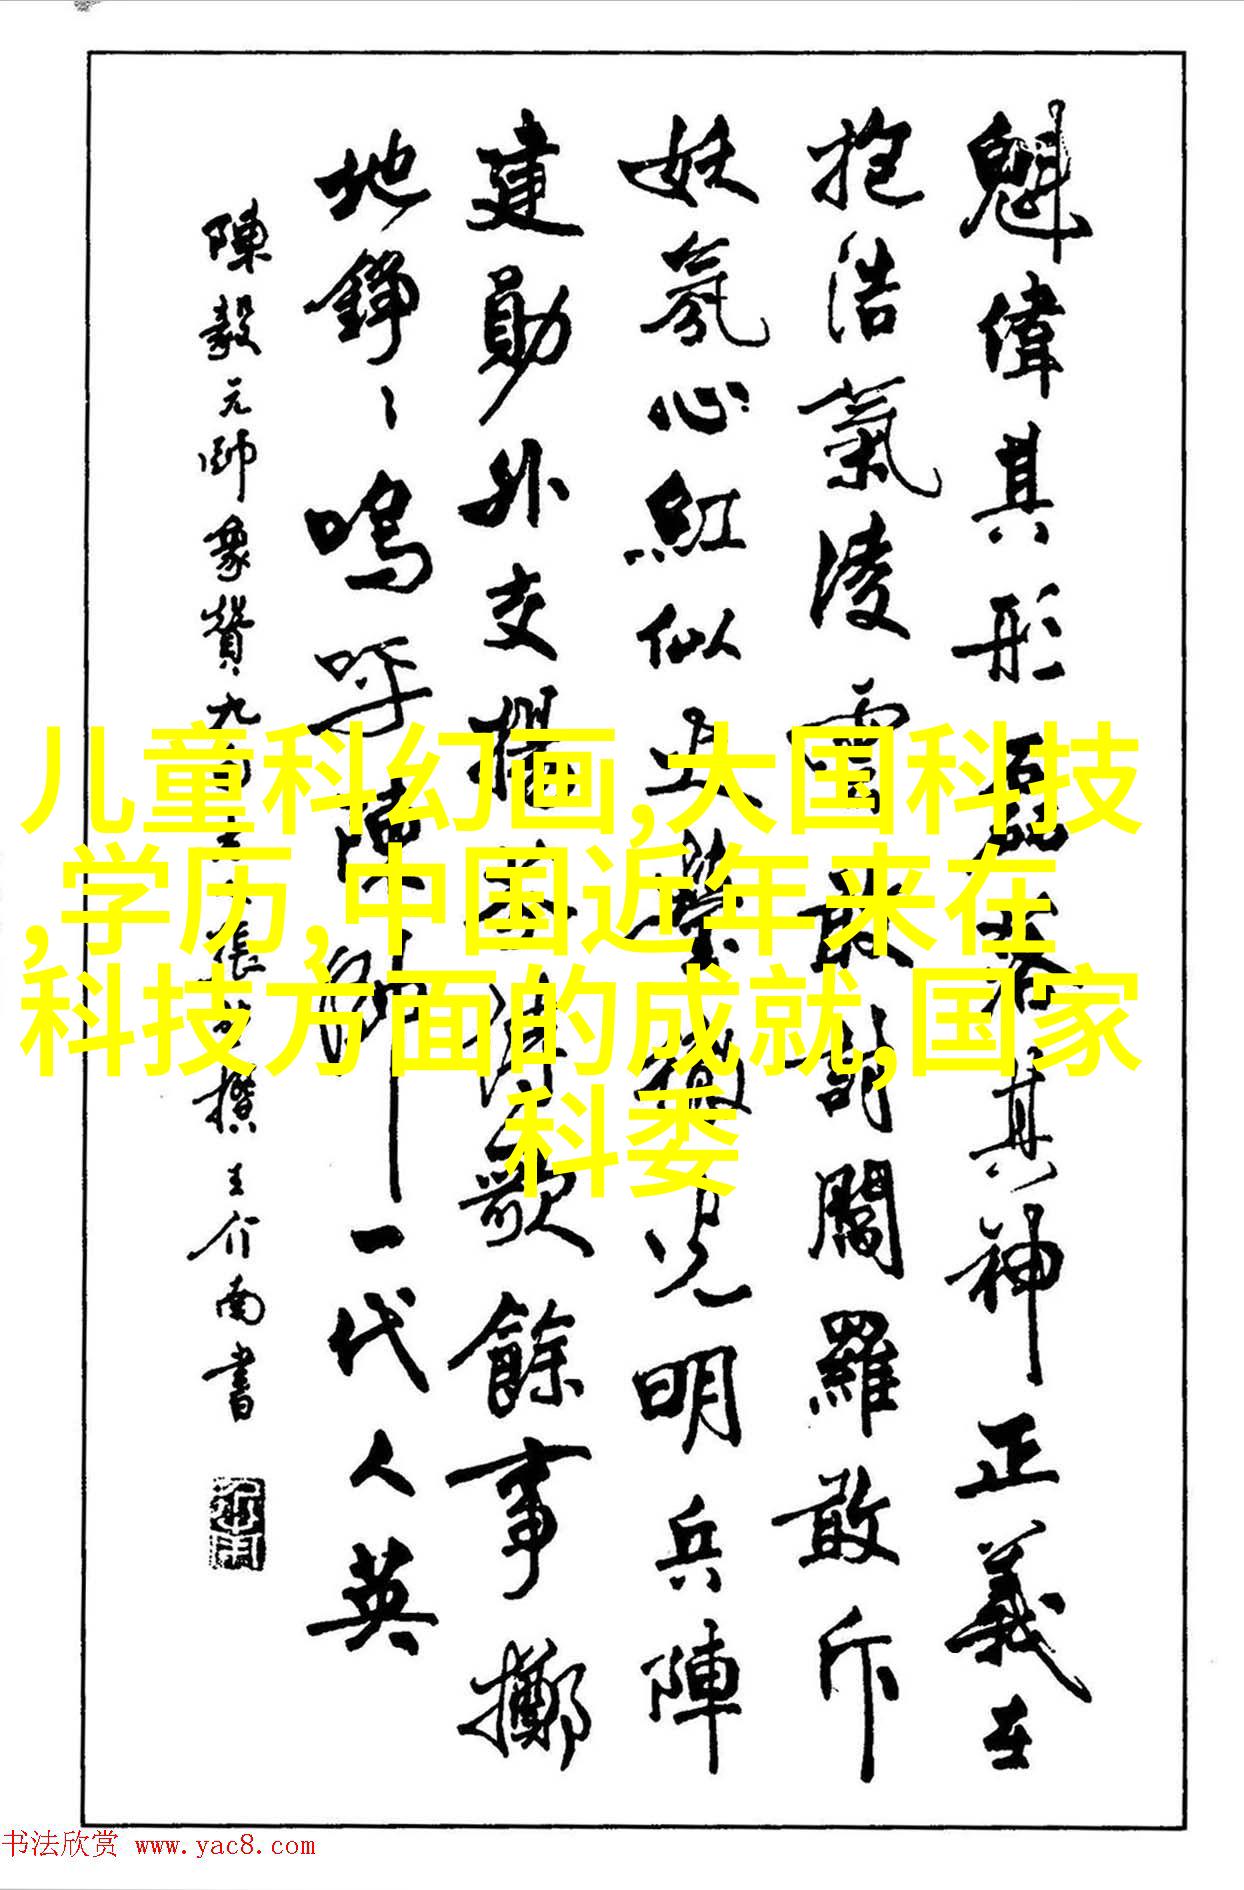 魁偉其形磊落其神正義在
抱浩氣凌雲敢訶閻羅敢斥
妖氛心紅似火
光明兵陣
建勛外交
歌餘事擲
地錚々嗚呼陳帥一代人英
陳毅元帥象贊九
撰王介南書
儿童科幻画,大国科技
,学历,中国近年来在
科技方面的成就,国家
科委
书法欣赏 www.yac8.com